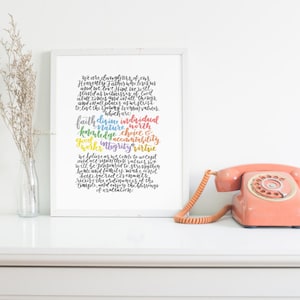 We are daughters of our
Heavenly Father who loves us
and we love Him. We will
stand as witnesses of God
at all times and in all things
and in all places as we strive
to live the young women values,
which are:
faith divine individual
nature worth
knowledge choice &
accountability
good
works integrity virtue
We believe as we come to accept
and act upon these values, we
will be prepared to strengthen
home and family, make and
keep sacred covenants,
receive the ordinances of the
temple, and enjoy the blessings
of exaltation.